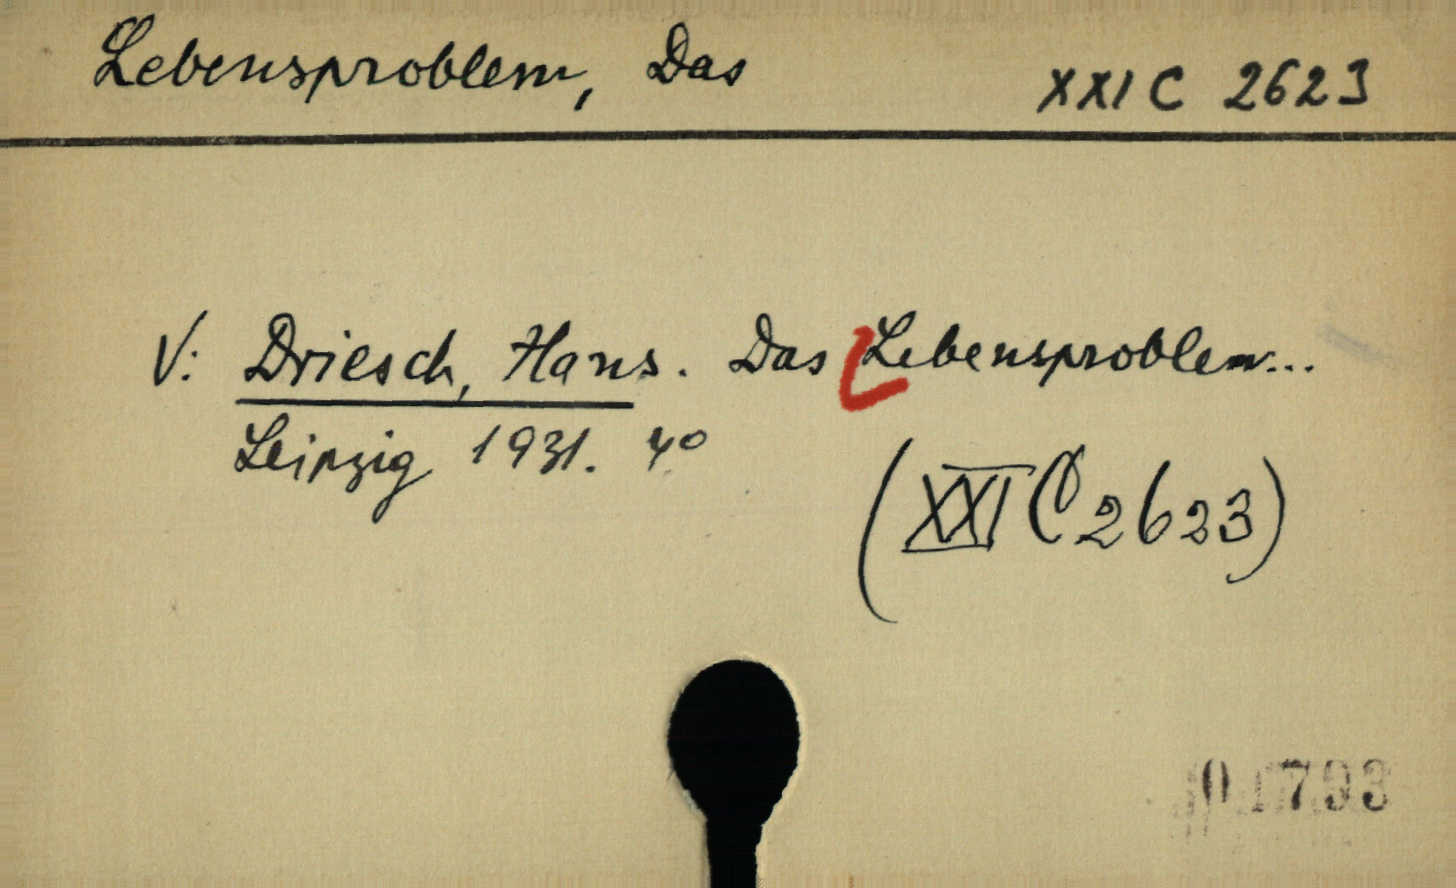 Lebensproblem, Das
XXI C 2623
V: Driesch, Hans. Das Lebensproblem...
Leipzig 1931. 4°
(XXI C 2623)
01793